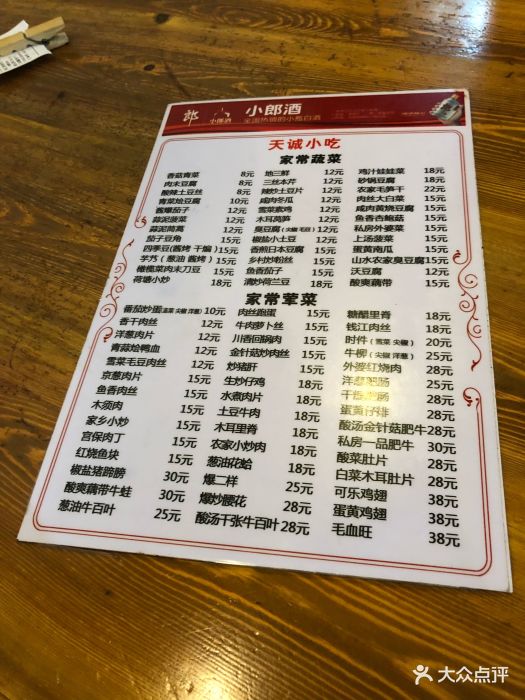 郎
小郎酒
小郎酒
全国热销的小瓶白酒
天诚小吃
家常蔬菜
香菇青菜 8元
肉末豆腐 8元
酸辣土豆丝 8元
青菜烩豆腐 10元
酱爆茄子 12元
蒜泥菠菜 12元
蒜泥茼蒿 12元
茄子豆角 15元
四季豆(酱烤 干煸) 15元
芋艿(葱油 酱烤) 15元
橄榄菜肉末刀豆 15元
荷塘小炒 18元
地三鲜 12元
三丝本芹 12元
辣炒土豆片 12元
咸肉冬瓜 12元
雪菜素鸡 12元
木耳莴笋 12元
臭豆腐(尖椒 毛豆) 15元
椒盐小土豆 15元
香煎日本豆腐 15元
乡村炒粉丝 15元
鱼香茄子 15元
清炒荷兰豆 18元
鸡汁娃娃菜 18元
砂锅豆腐 18元
农家毛笋干 22元
肉丝大白菜 15元
咸肉黄烧豆腐 18元
鱼香杏鲍菇 15元
私房外婆菜 15元
上汤菠菜 15元
蛋黄南瓜 15元
山水农家臭豆腐 18元
沃豆腐 12元
酸爽藕带 15元
家常荤菜
番茄炒蛋(韭菜 尖椒 洋葱) 12元
香干肉丝 12元
洋葱肉片 12元
青蒜烩鸭血 12元
雪菜毛豆肉丝 12元
京葱肉片 15元
鱼香肉丝 15元
木须肉 15元
家乡小炒 15元
宫保肉丁 15元
红烧鱼块 15元
椒盐猪蹄膀 30元
酸爽藕带牛蛙 30元
葱油牛百叶 25元
肉丝跑蛋 15元
牛肉萝卜丝 15元
川香回锅肉 15元
金针菇炒肉丝 15元
炒猪肝 15元
生炒仔鸡 18元
水煮肉片 18元
土豆牛肉 18元
木耳里脊 18元
农家小炒肉 18元
葱油花蛤 18元
爆二样 25元
爆炒腰花 28元
酸汤千张牛百叶 28元
糖醋里脊 18元
钱江肉丝 18元
时件(雪菜 尖椒) 20元
牛柳(尖椒 洋葱) 25元
外婆红烧肉 25元
洋葱肥肠 25元
干 肥肠 25元
蛋黄仔排 28元
酸汤金针菇肥牛 28元
私房一品肥牛 30元
酸菜肚片 28元
白菜木耳肚片 28元
可乐鸡翅 38元
蛋黄鸡翅 38元
毛血旺 38元
大众点评